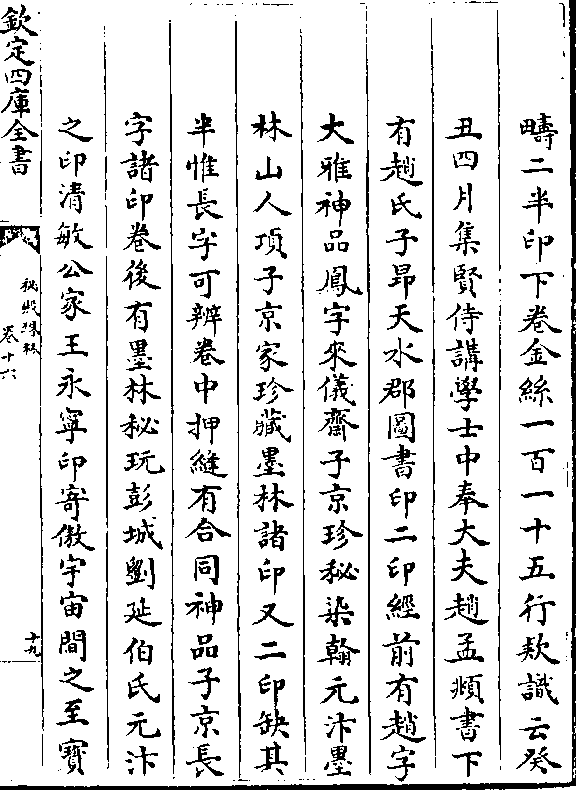 疇二半印下卷金絲一百一十五行欵識云癸
丑四月集賢侍講學士中奉大夫趙孟頫書下
有趙氏子昻天水郡圖書印二印經前有趙字
大雅神品鳳字來儀齋子京珍秘染翰元汴墨
林山人項子京家珍藏墨林諸印又二印缺其
半惟長字可辨卷中押縫有合同神品子京長
字諸印卷後有墨林秘玩彭城劉延伯氏元汴
之印清敏公家王永寧印寄傲宇宙間之至寳
欽定四庫全書
秘殿珠林
卷十六
十九